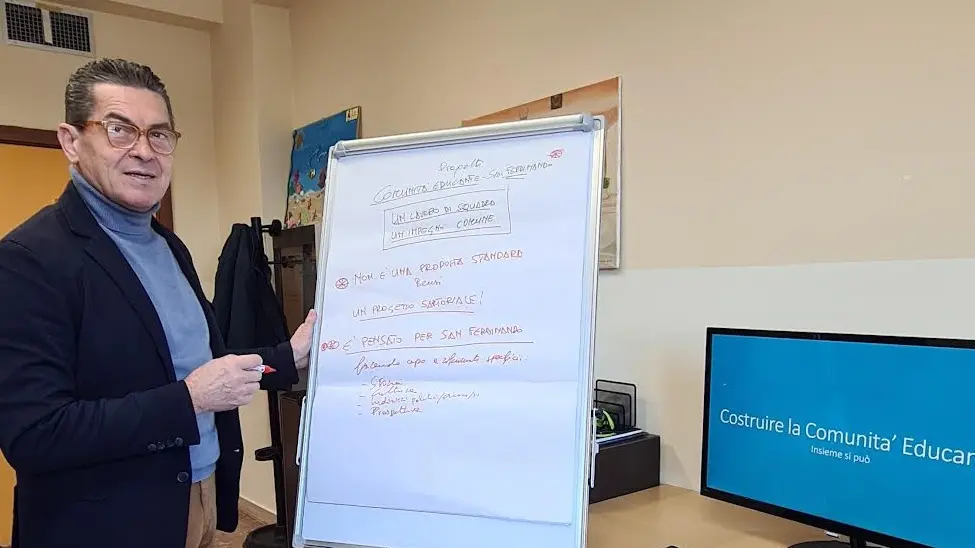 Progetto
COMUNITA' EDUCANTE - SAN FERDINANDO
UN LAVORO DI SQUADRA
UN IMPEGNO COMUNE
NON E' UNA PROPOSTA STANDARD
Bensì
UN PROGETTO SARTORIALE!
E' PENSATO PER SAN FERDINANDO
facendo capo a elementi specifici:
- Storia
- Cultura
- Prospettive
Costruire la Comunita' Educan
Insieme si può